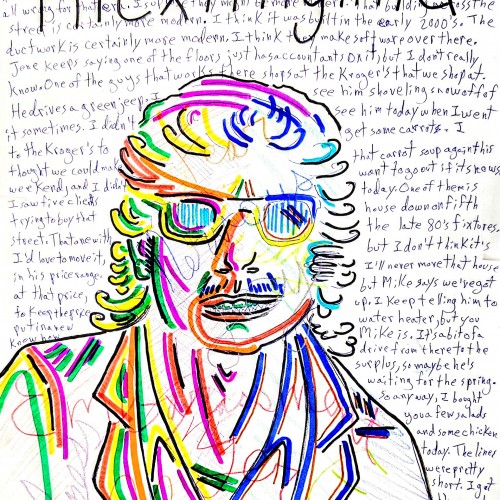 all wrong for that area. I suppose they might be more
street is certainly more modern. I think it was built in the early 2000's. The
ductwork is certainly more modern, I think they make software over there.
Jene keeps saying one of the floors just has accountants on it, but I don't really
know. One of the guys that works there shops at the Kroger's that we shop at.
He drives a green jeep. I see him shoveling snow off of
it sometimes. I didn't see him today when I went
to the Kroger's to get some carrots. I
thought we could make that carrot soup again this
weekend, and I didn't want to go out if it snows.
I saw five clients today. One of them is
trying to buy that house down on fifth
street. That one with the late 80's fixtures.
I'd love to move it, but I don't think it's
in his price range. I'll never move that house
at that price, but Mike says we've got
to keep the price up. I keep telling him to
put in a new water heater, but you
know how Mike is. It's a bit of a
drive from there to the
surplus, so maybe he's
waiting for the spring.
so anyway, I bought
you a few salads
and some chicken
today. The lines
were pretty
short. I got